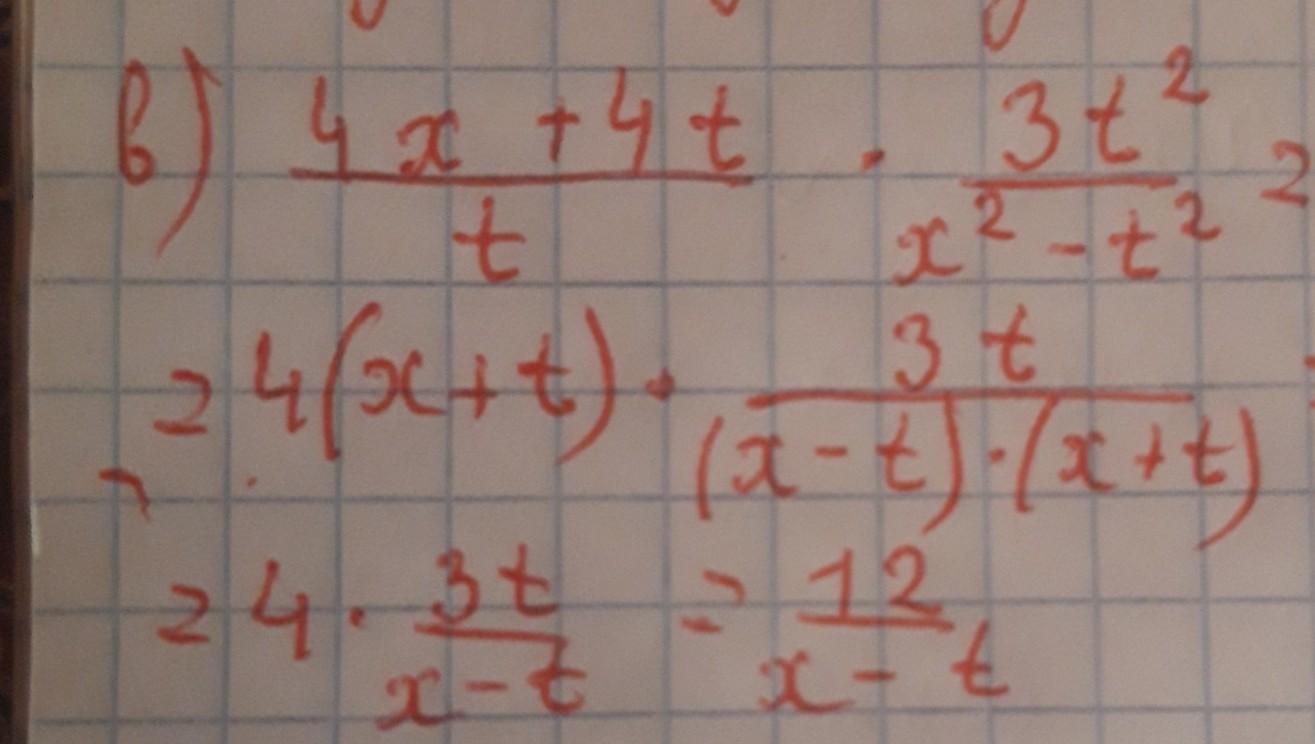 в) (4x + 4t)/t · 3t²/(x² - t²) =
= 4(x + t) · 3t/((x - t) · (x + t))
= 4 · 3t/(x - t) = 12/(x - t)